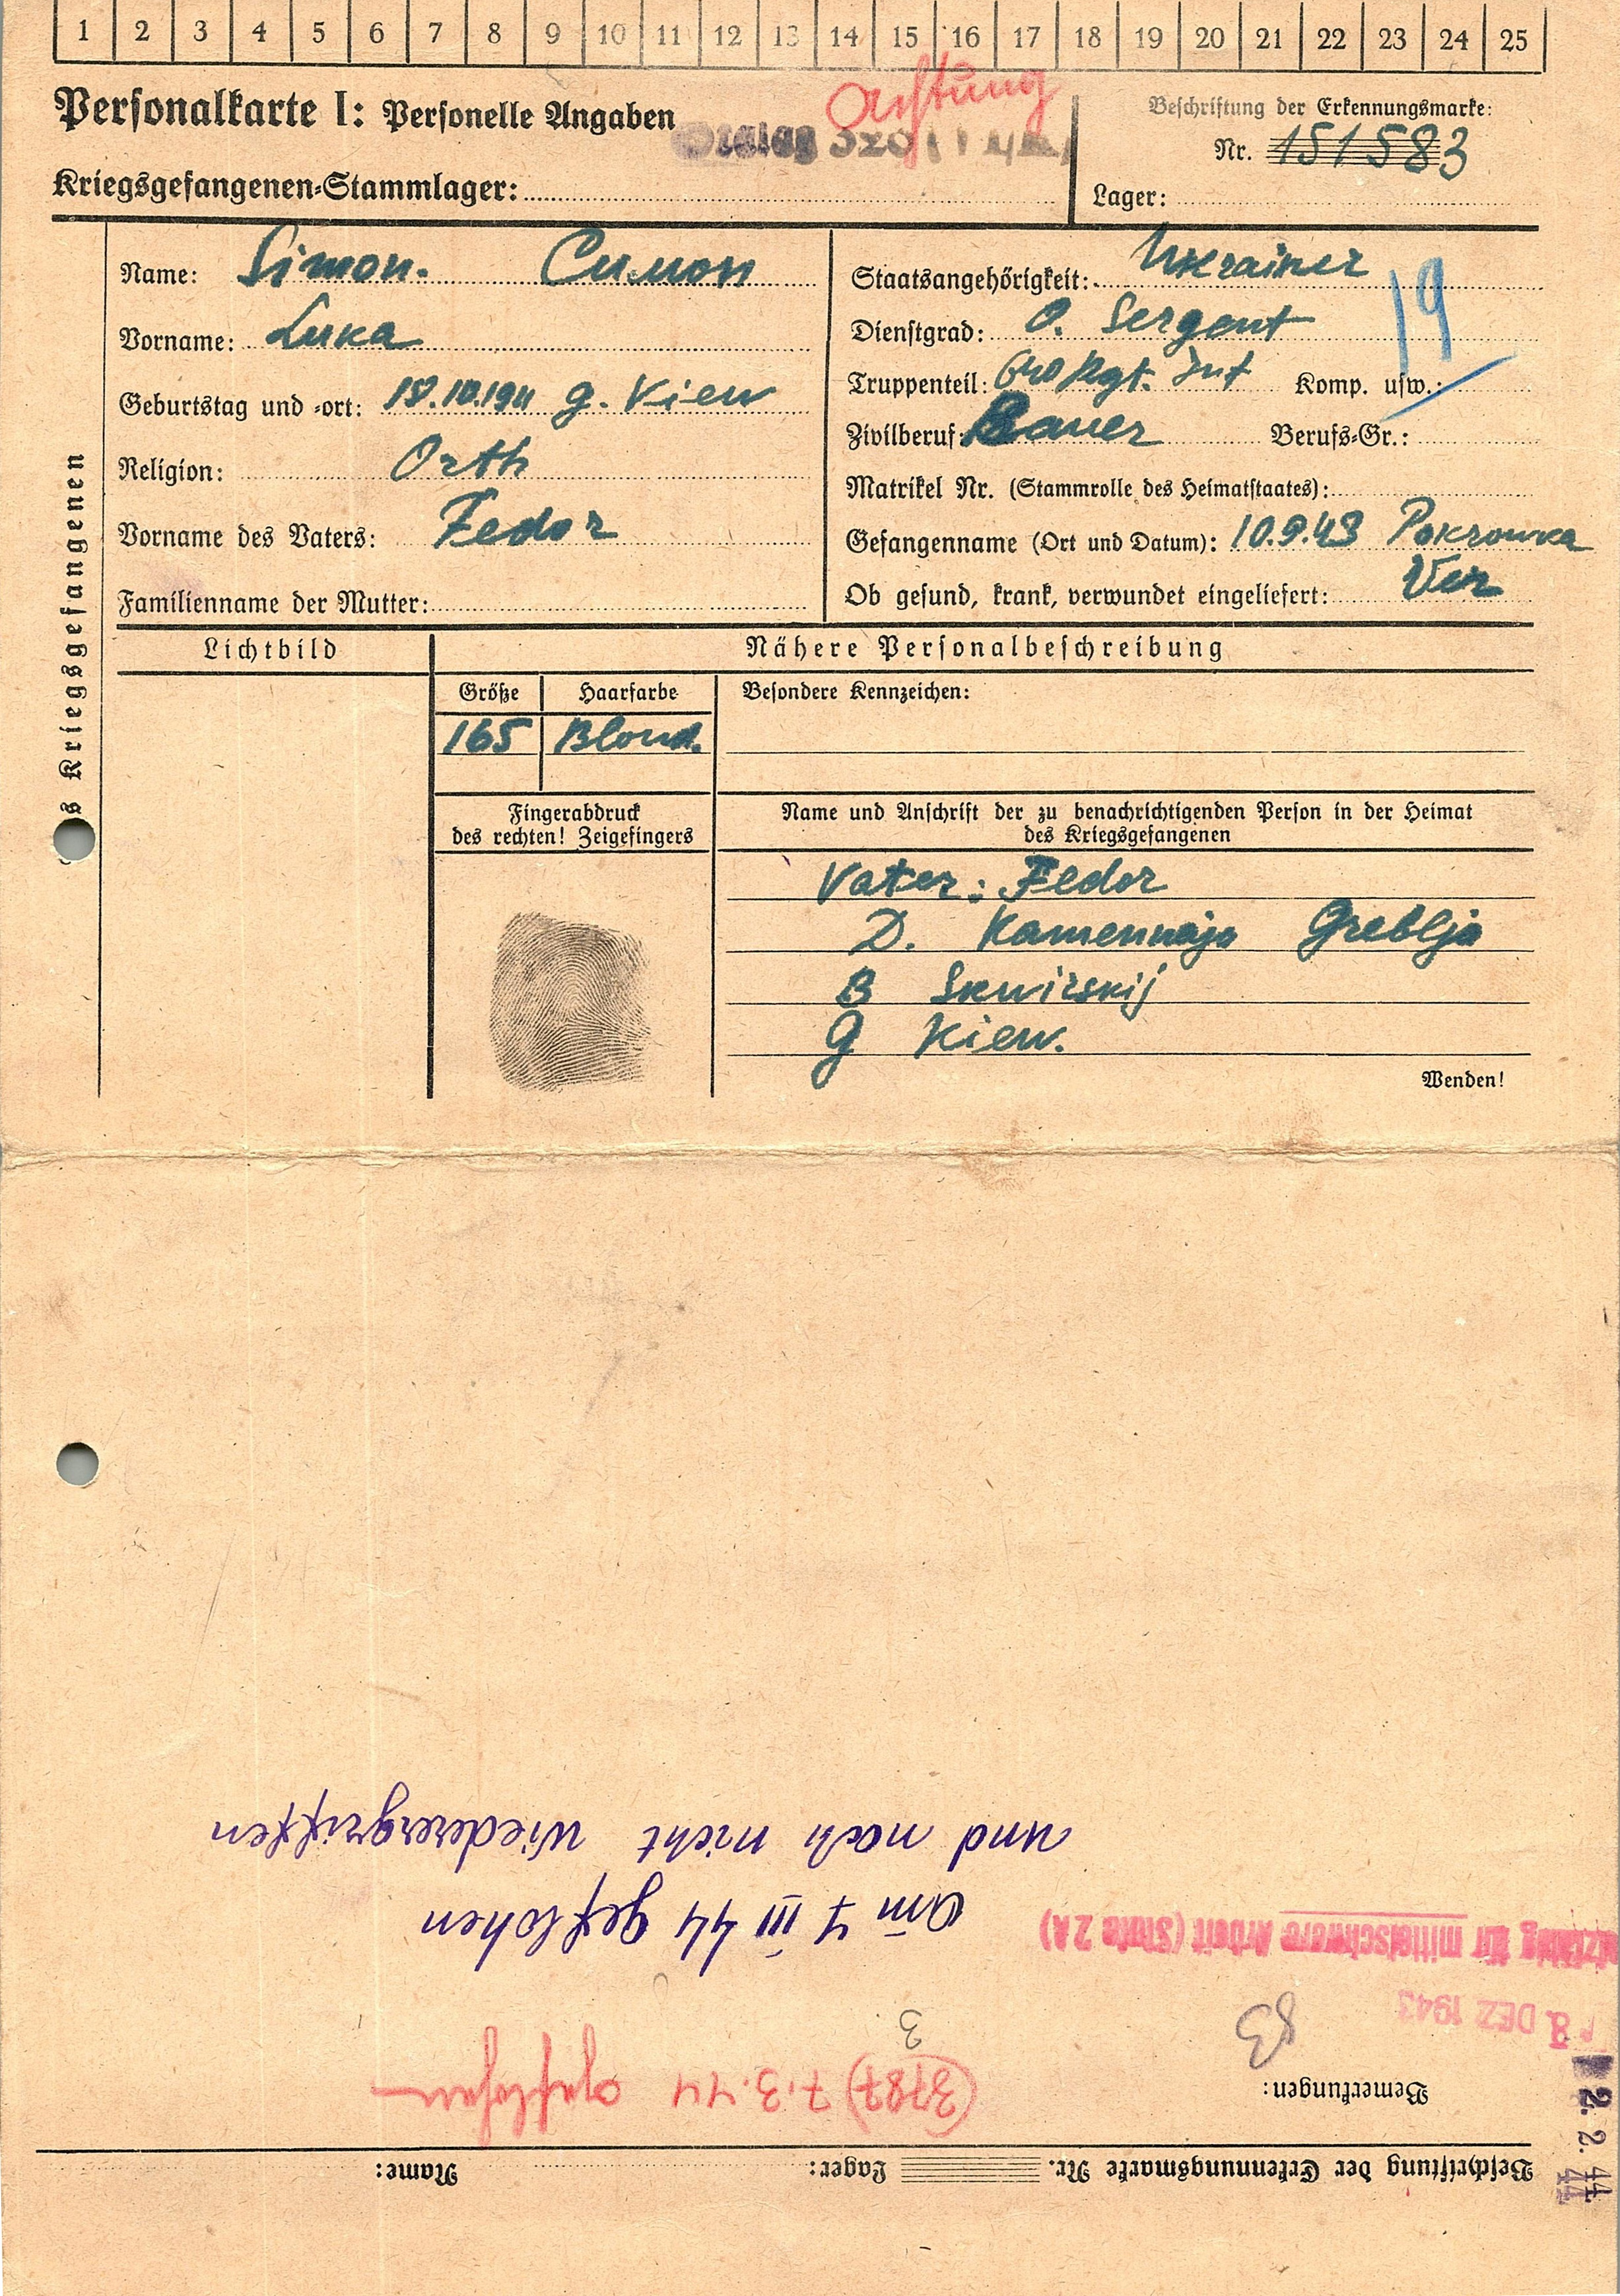 1 2 3 4 5 6 7 8 9 10 11 12 13 14 15 16 17 18 19 20 21 22 23 24 25
Personalkarte I: Personelle Angaben
Achtung
Beschriftung der Erkennungsmarke:
Nr. 151583
Kriegsgefangenen-Stammlager:
Lager:
des Kriegsgefangenen
Name: Simon. Симон
Vorname: Luka
Geburtstag und -ort: 18.10.1911 g. Kiew
Religion: Orth
Vorname des Vaters: Fedor
Familienname der Mutter:
Staatsangehörigkeit: Ukrainer
19
Dienstgrad: O. Sergent
Truppenteil: 640 Rgt. Inf Komp. usw.:
Zivilberuf: Bauer Berufs-Gr.:
Matrikel Nr. (Stammrolle des Heimatstaates):
Gefangenname (Ort und Datum): 10.9.43 Pokrowka
Ob gesund, krank, verwundet eingeliefert: Ver
Lichtbild
Nähere Personalbeschreibung
Größe Haarfarbe Besondere Kennzeichen:
165 Blond.
Fingerabdruck
des rechten! Zeigefingers
Name und Anschrift der zu benachrichtigenden Person in der Heimat
des Kriegsgefangenen
Vater: Fedor
D. Kamennaja Greblja
B Skwirskij
G Kiew.
Wenden!
Beschriftung der Erkennungsmarke Nr. Lager: Name:
Bemerkungen:
(3787) 7.3.44 Geflohen
3
83
2. 2. 44
DEZ 1943
für mittelschwere Arbeit (Stufe 2A)
Am 7 III 44 geflohen
und noch nicht wiederergriffen